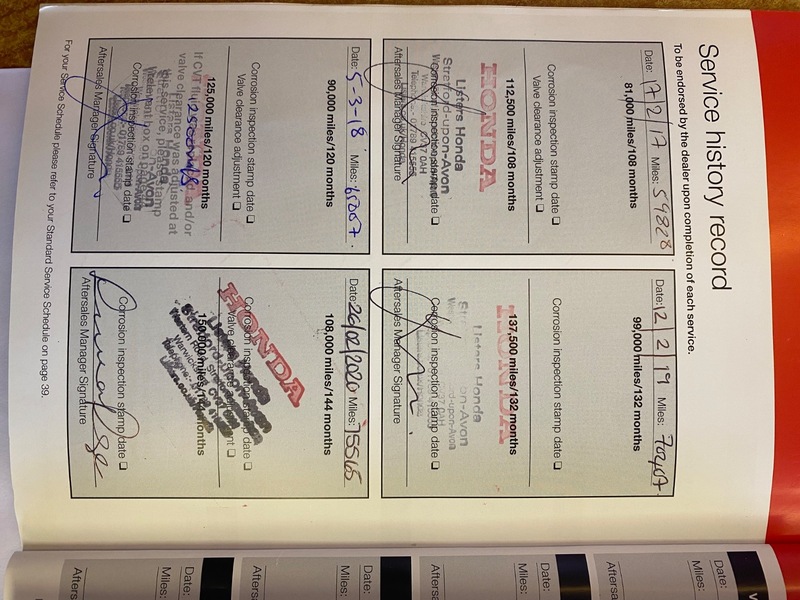 Service history record
To be endorsed by the dealer upon completion of each service.
Date: 17/2/17 Miles: 59828
81,000 miles/108 months
Corrosion inspection stamp date ❑
Valve clearance adjustment ❑
112,500 miles/108 months
HONDA
Listers Honda
Stratford-upon-Avon
Corrosion inspection stamp date ❑
Aftersales Manager Signature
Date: 5-3-18 Miles: 65067.
90,000 miles/120 months
Corrosion inspection stamp date ❑
Valve clearance adjustment ❑
125,000 miles/120 months
If CVT fluid and/or
valve clearance was adjusted at
this service, please stamp
relevant box on
Corrosion inspection stamp date ❑
Aftersales Manager Signature
Date: 12/2/19 Miles:
99,000 miles/132 months
Corrosion inspection stamp date ❑
137,500 miles/132 months
HONDA
Listers Honda
Corrosion inspection stamp date ❑
Aftersales Manager Signature
Date: 26/02/2020 Miles: 75565
108,000 miles/144 months
Corrosion inspection stamp date ❑
Valve clearance adjustment ❑
HONDA
150,000 miles/144 months
Corrosion inspection stamp date ❑
Aftersales Manager Signature
For your Service Schedule please refer to your Standard Service Schedule on page 39.
Date:
Miles:
Date:
Date:
Miles:
Date:
Date:
Miles:
Date:
Date:
Miles:
Date: